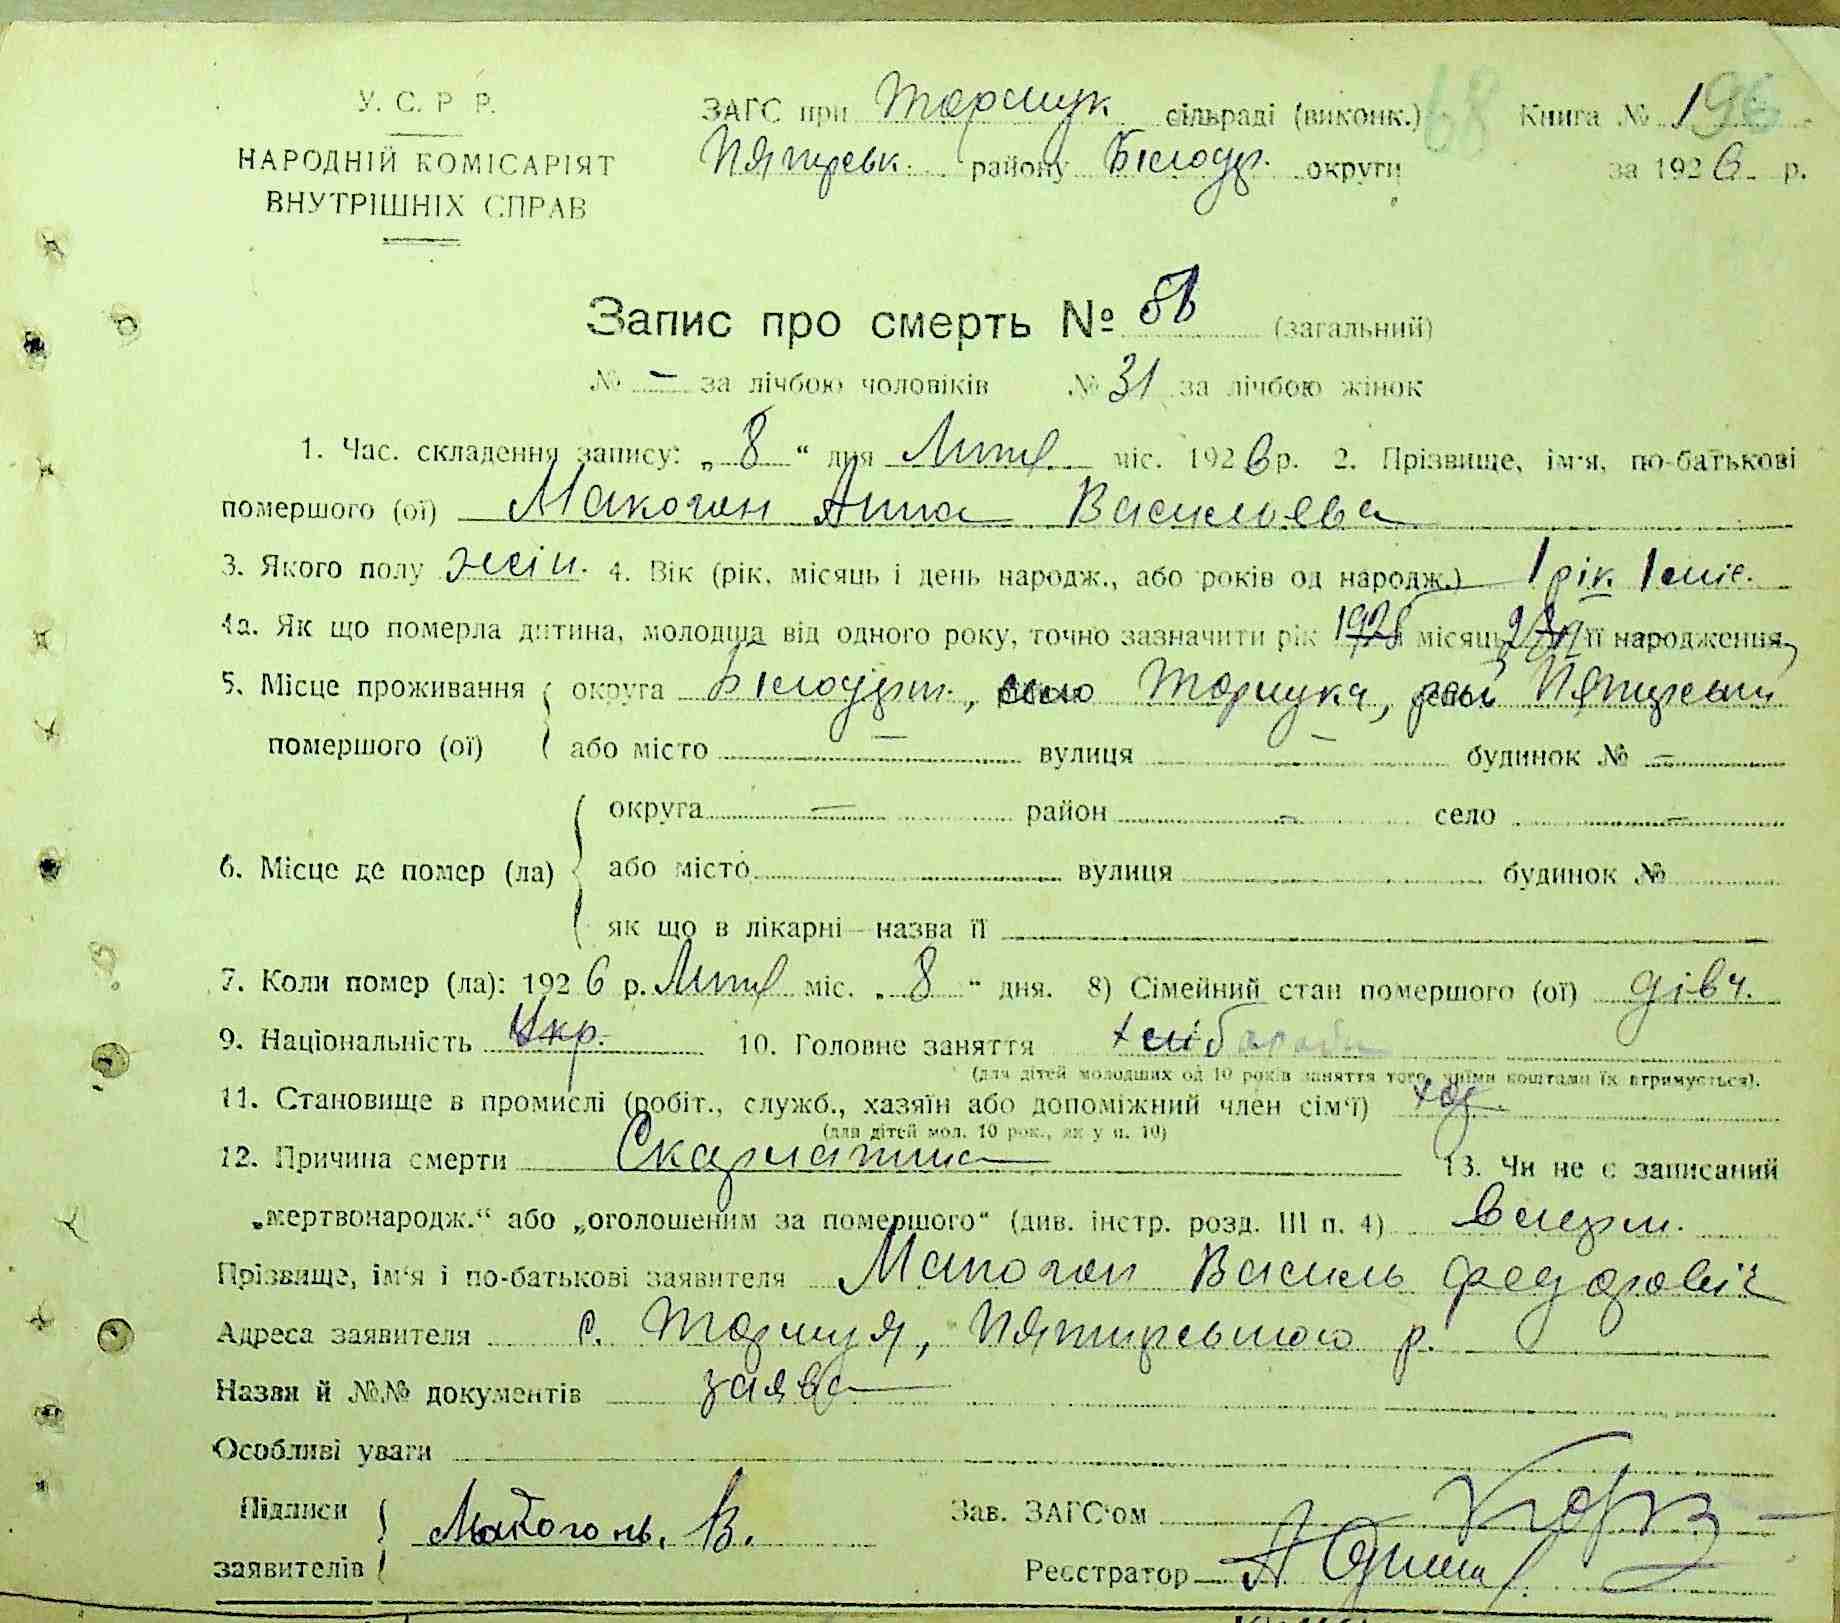 У. С. Р. Р.
НАРОДНІЙ КОМІСАРІЯТ
ВНУТРІШНІХ СПРАВ
ЗАГС при сільраді (виконк.) 68 Книга № 196
району Білоцр. округи за 1926. р.
Запис про смерть № (загальний)
№ – за лічбою чоловіків № 31 за лічбою жінок
1. Час. складення запису: „8“ дня Лют. міс. 1926 р. 2. Прізвище, ім'я, по-батькові
помершого (ої) Макогон Анна Васильева
3. Якого полу жін. 4. Вік (рік, місяць і день народж., або років од народж.) 1 рік 1 міс.
4а. Як що померла дитина, молодша від одного року, точно зазначити рік місяць її народження
5. Місце проживання округа село рай
помершого (ої) або місто – вулиця – будинок № –
округа – район – село –
6. Місце де помер (ла) або місто вулиця будинок №
як що в лікарні – назва її
7. Коли помер (ла): 1926 р. Лют. міс. „8“ дня. 8) Сімейний стан помершого (ої) дівч.
9. Національність Укр. 10. Головне заняття хлібороби
(для дітей молодших од 10 років заняття того, чиїми коштами їх втримується).
11. Становище в промислі (робіт., служб., хазяїн або допоміжний член сім'ї) хаз.
(для дітей мол. 10 рок., як у п. 10)
12. Причина смерти Скарлатина 13. Чи не є записаний
„мертвонародж.“ або „оголошеним за помершого“ (див. інстр. розд. III п. 4) вмерл.
Прізвище, ім'я і по-батькові заявителя Макогон Василь Федоровіч
Адреса заявителя с. р.
Назви й №№ документів заява
Особливі уваги
Підписи Макогонь. В. Зав. ЗАГС'ом
заявителів Реєстратор